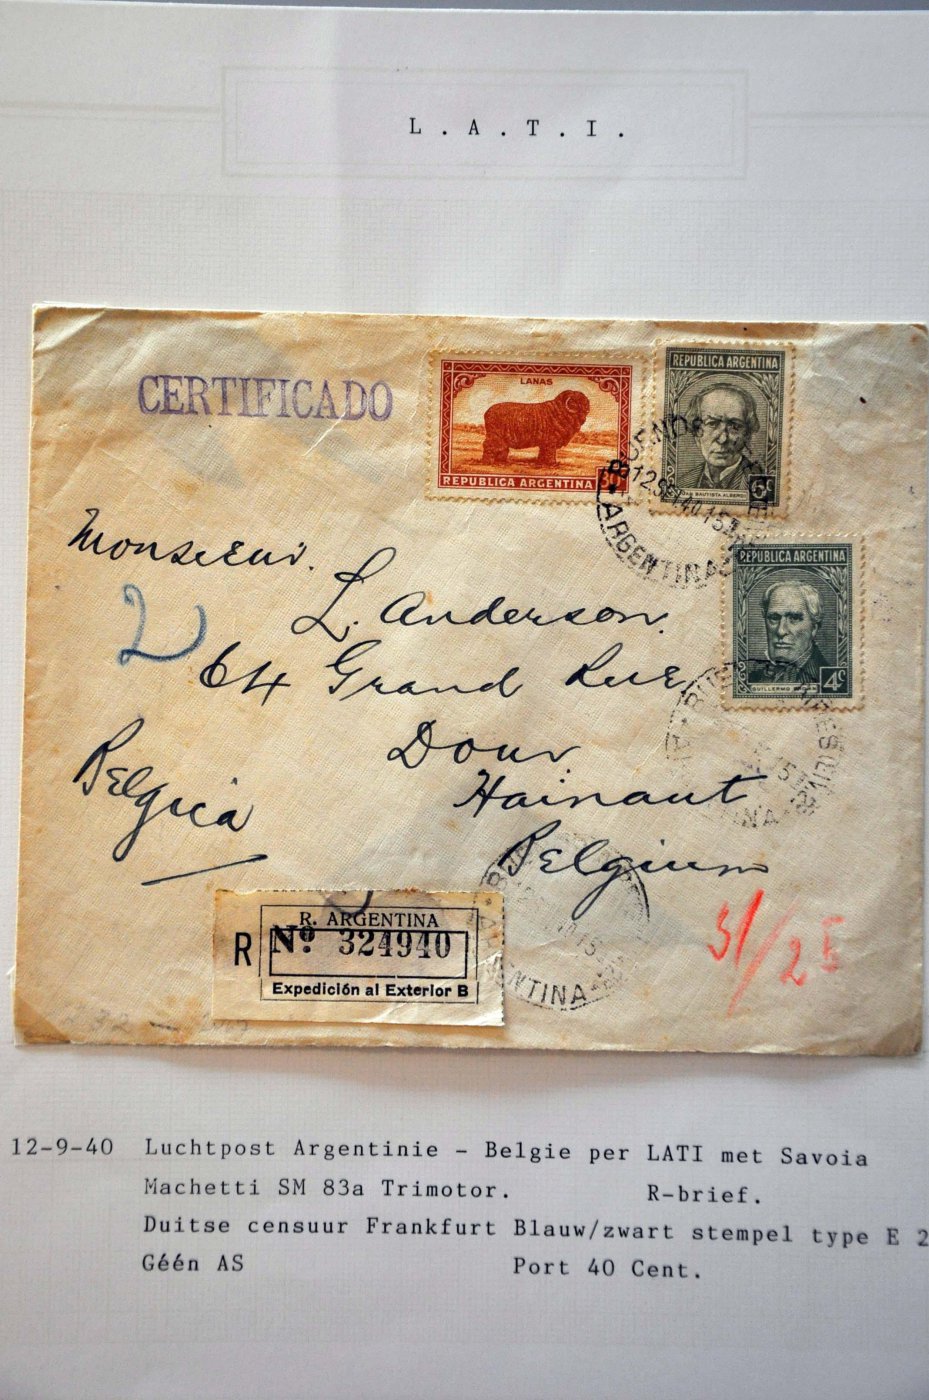 L.A.T.I.
CERTIFICADO
LANAS
REPUBLICA ARGENTINA 30c
REPUBLICA ARGENTINA
JUAN BAUTISTA ALBERDI
6c
REPUBLICA ARGENTINA
GUILLERMO BROWN
4c
BUENOS AIRES
12 SET 40 15
ARGENTINA
Monsieur.
L. Anderson.
2
64 Grand Rue
Dour
Belgica
Hainaut
Belgium
R. ARGENTINA
R Nº 324940
Expedición al Exterior B
ARGENTINA
12-9-40 Luchtpost Argentinie - Belgie per LATI met Savoia
Machetti SM 83a Trimotor. R-brief.
Duitse censuur Frankfurt Blauw/zwart stempel type E 2
Géén AS Port 40 Cent.